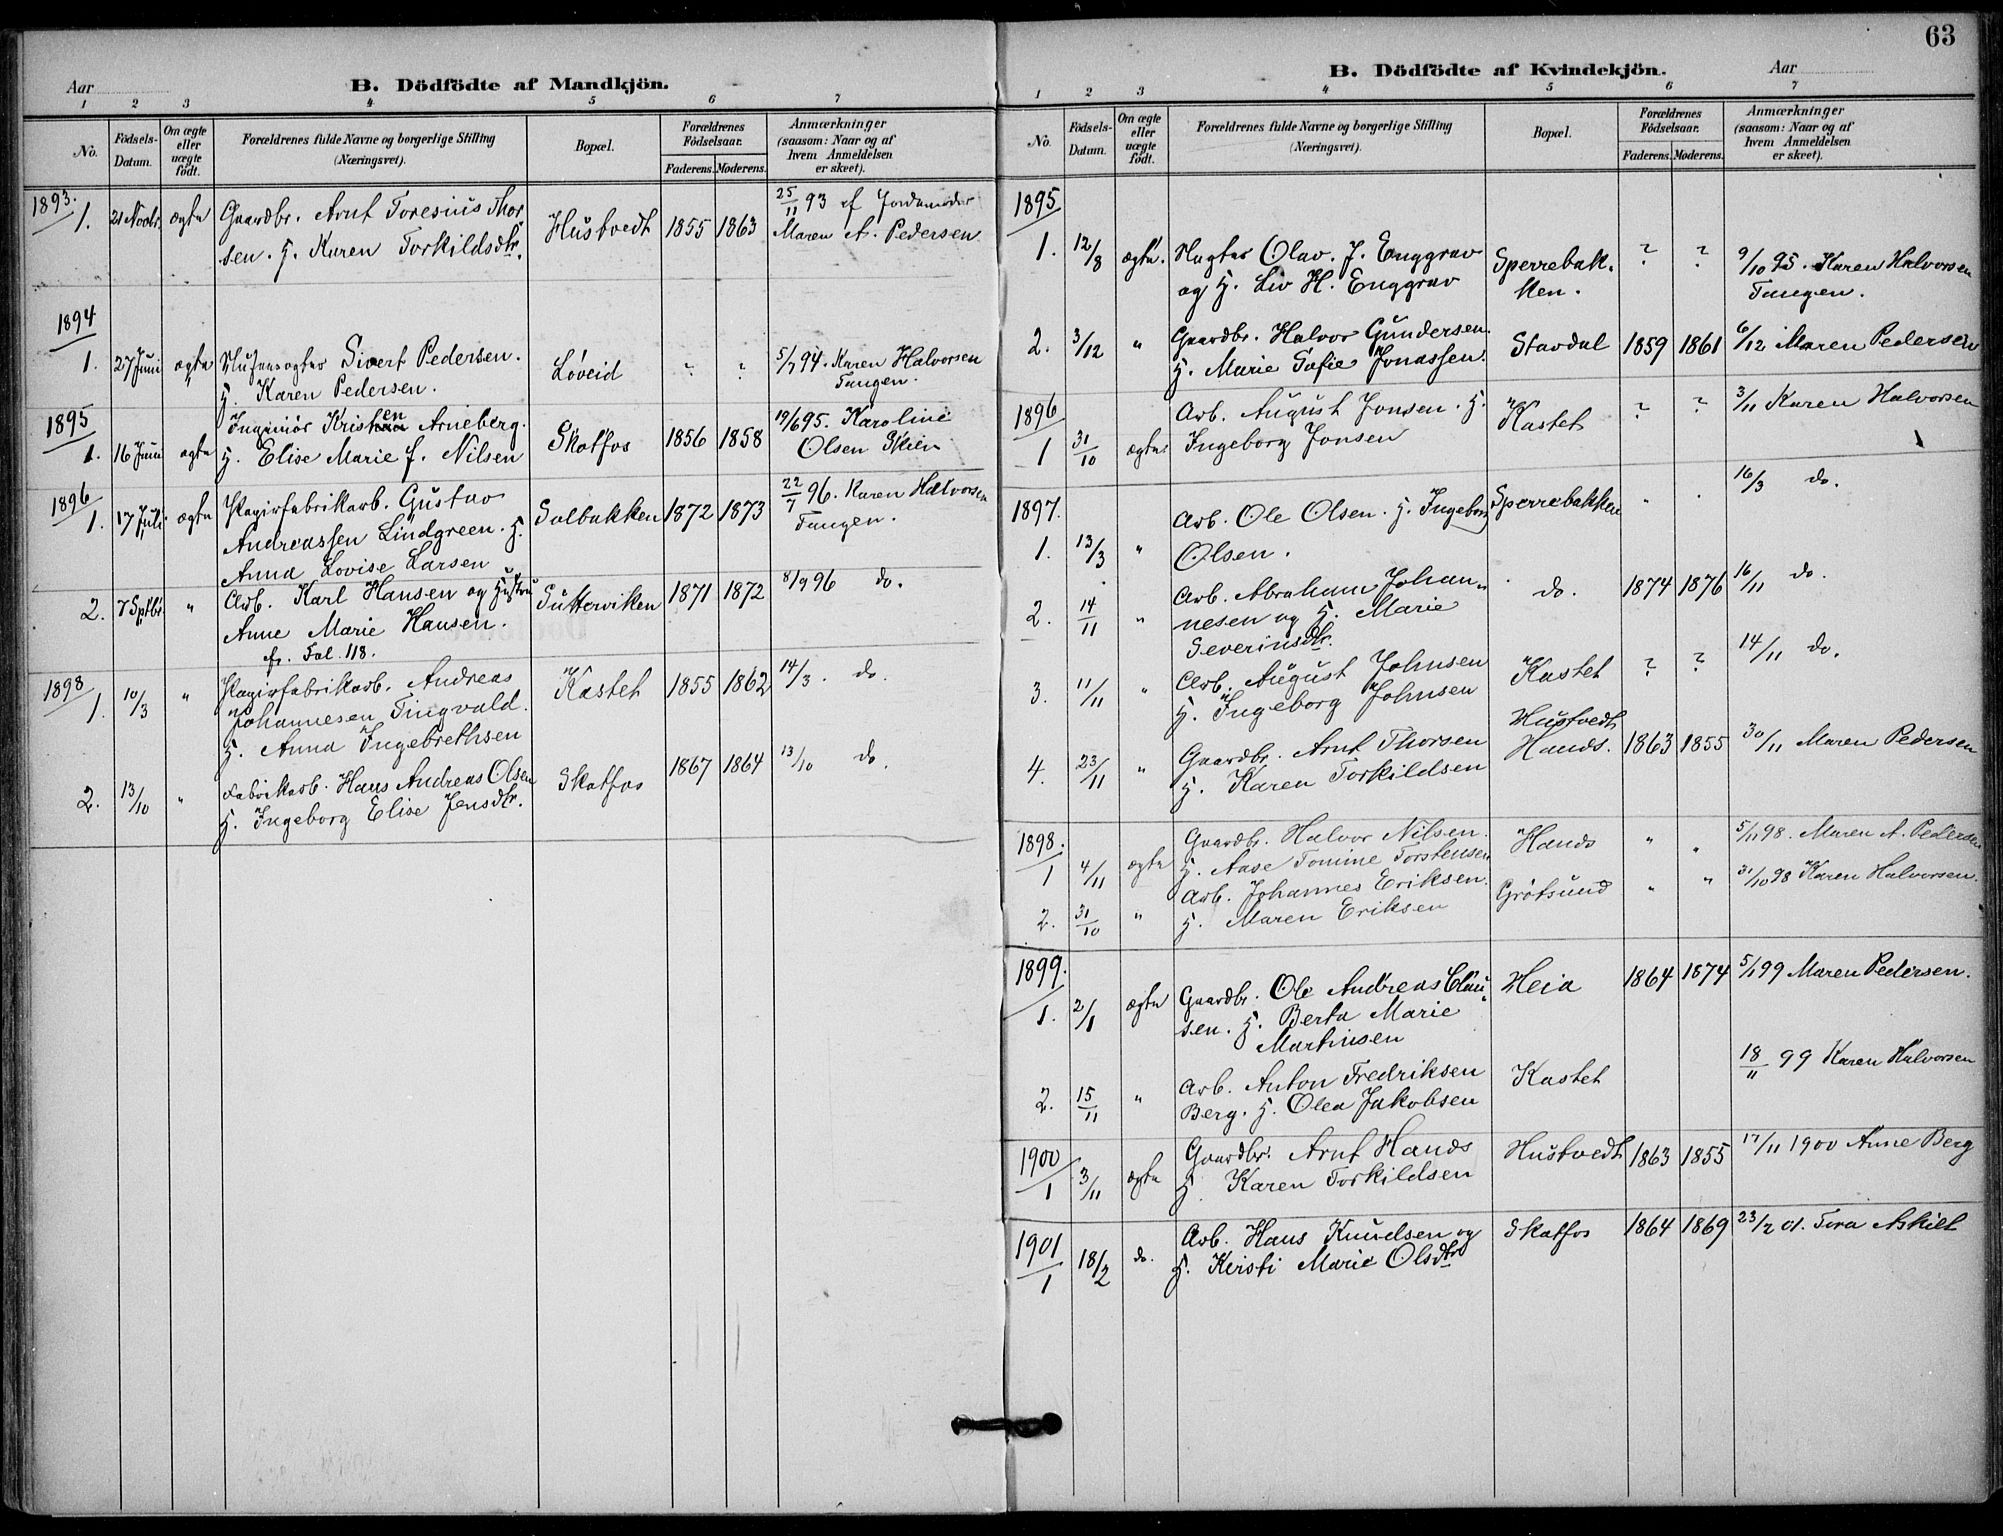 63
Aar
B. Dödfödte af Mandkjön.
1 2 3 4 5 6 7
No.
Födsels-Datum.
Om ægte eller uægte födt.
Forældrenes fulde Navne og borgerlige Stilling (Næringsvei).
Bopæl.
Forældrenes Födselsaar.
Faderens. Moderens.
Anmærkninger (saasom: Naar og af hvem Anmeldelsen er skeet).
1893.
1. 21 Novbr. ægte Gaardbr. Arnt Toresius Thor Hustvedt 1855 1863 25/11 93 af Jordemoder
sen. H. Karen Torkildsdtr. Maren A. Pedersen
1894
1. 27 Juni ægte Slusevogter Sivert Pedersen. Løveid ? ? 5/7 94. Karen Halvorsen
H. Karen Pedersen. Tangen.
1895
1. 16 Juni ægte Ingeniør Kristen Arneberg. Skotfos 1856 1858 19/6 95. Karoline
H. Elise Marie f. Nilsen Olsen Skien
1896
1. 17 Juli ægte Papirfabrikarb. Gustav Solbakken 1872 1873 22/7 96. Karen Halvorsen
Andreassen Lindgreen. H. Tangen.
Anna Lovise Larsen
2. 7 Sptbr. " Arb. Karl Hansen og Hustru Gutterviken 1871 1872 8/9 96 do.
Anne Marie Hansen.
cfr. Fol. 118.
1898
1. 10/3 " Papirfabrikarb. Andreas Kastet 1855 1862 14/3. do.
Johannesen Tingvald.
H. Anna Ingebrethsen
2. 13/10 " Fabrikarb. Hans Andreas Olsen Skotfos 1867 1864 13/10 do.
H. Ingeborg Elise Jensdtr.
B. Dödfödte af Kvindekjön.
Aar
1 2 3 4 5 6 7
No.
Födsels-Datum.
Om ægte eller uægte födt.
Forældrenes fulde Navne og borgerlige Stilling (Næringsvei).
Bopæl.
Forældrenes Födselsaar.
Faderens. Moderens.
Anmærkninger (saasom: Naar og af hvem Anmeldelsen er skeet).
1895
1. 12/8 ægte. Vogter Olav. J. Enggrav Sperrebak- ? ? 9/10 95. Karen Halvorsen
og H. Liv H. Enggrav ken. Tangen.
2. 3/12 " Gaardbr. Halvor Gundersen. Stavdal 1859 1861 6/12 Maren Pedersen
H. Marie Sofie Jonassen.
1896
1 31/10 ægte. Arb. August Jonsen. H. Kastet ? ? 3/11 Karen Halvorsen
Ingeborg Jonsen
1897.
1. 13/3 " Arb. Ole Olsen. H. Ingeborg Sperrebakken " . 16/3 do.
Olsen.
2. 14/11 " Arb. Abraham Johan- do. 1874 1876 16/11 do.
nesen og H. Marie
Severinsdtr.
3. 11/11 " Arb. August Johnsen Kastet ? ? 14/11 do.
H. Ingeborg Johnsen
4. 23/11 " Gaardbr. Arnt Thorsen Hustvedt Hands. 1863 1855 30/11 Maren Pedersen
H. Karen Torkildsen
1898.
1 4/11 ægte Gaardbr. Halvor Nilsen. Hands " " 5/11 98. Maren A. Pedersen
H. Aase Tomine Torstensen
2. 31/10 " Arb. Johannes Eriksen. Grötsund " " 31/10 98 Karen Halvorsen.
H. Maren Eriksen
1899.
1. 2/1 ægte Gaardbr. Ole Andreas Clau- Heia 1864 1874 5/1 99 Maren Pedersen.
sen. H. Berta Marie
Martinsen
2. 15/11 " Arb. Anton Fredriksen Kastet 18/11 99 Karen Halvorsen
Berg. H. Olea Jakobsen
1900
1 3/11 ægte Gaardbr. Arnt Hands Hustvedt 1863 1855 17/11 1900 Anne Berg
H. Karen Torkildsen
1901
1 18/2 do. Arb. Hans Knudsen og Skotfos 1864 1869 23/2 01. Tora Askilt
H. Kirsti Marie Olsdtr